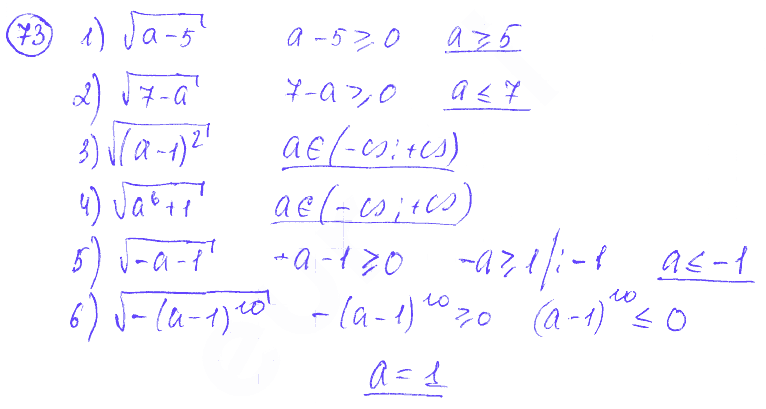 73 1) √(a-5) a-5≥0 a≥5
2) √(7-a) 7-a≥0 a≤7
3) √((a-1)²) a∈(-∞;+∞)
4) √(a⁶+1) a∈(-∞;+∞)
5) √(-a-1) -a-1≥0 -a≥1/:-1 a≤-1
6) √(-(a-1)¹⁰) -(a-1)¹⁰≥0 (a-1)¹⁰≤0
a=1